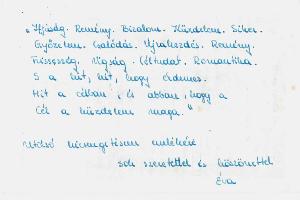 „Ifjúság. Remény. Bizalom. Küzdelem. Siker.
Győzelem. Csalódás. Újrakezdés. Remény.
Frissesség. Vígság. Céltudat. Romantika.
S a hit, hit, hogy érdemes.
Hit a célban és abban, hogy a
cél a küzdelem maga."
Utolsó emlékére
sok szeretettel és köszönettel
Éva